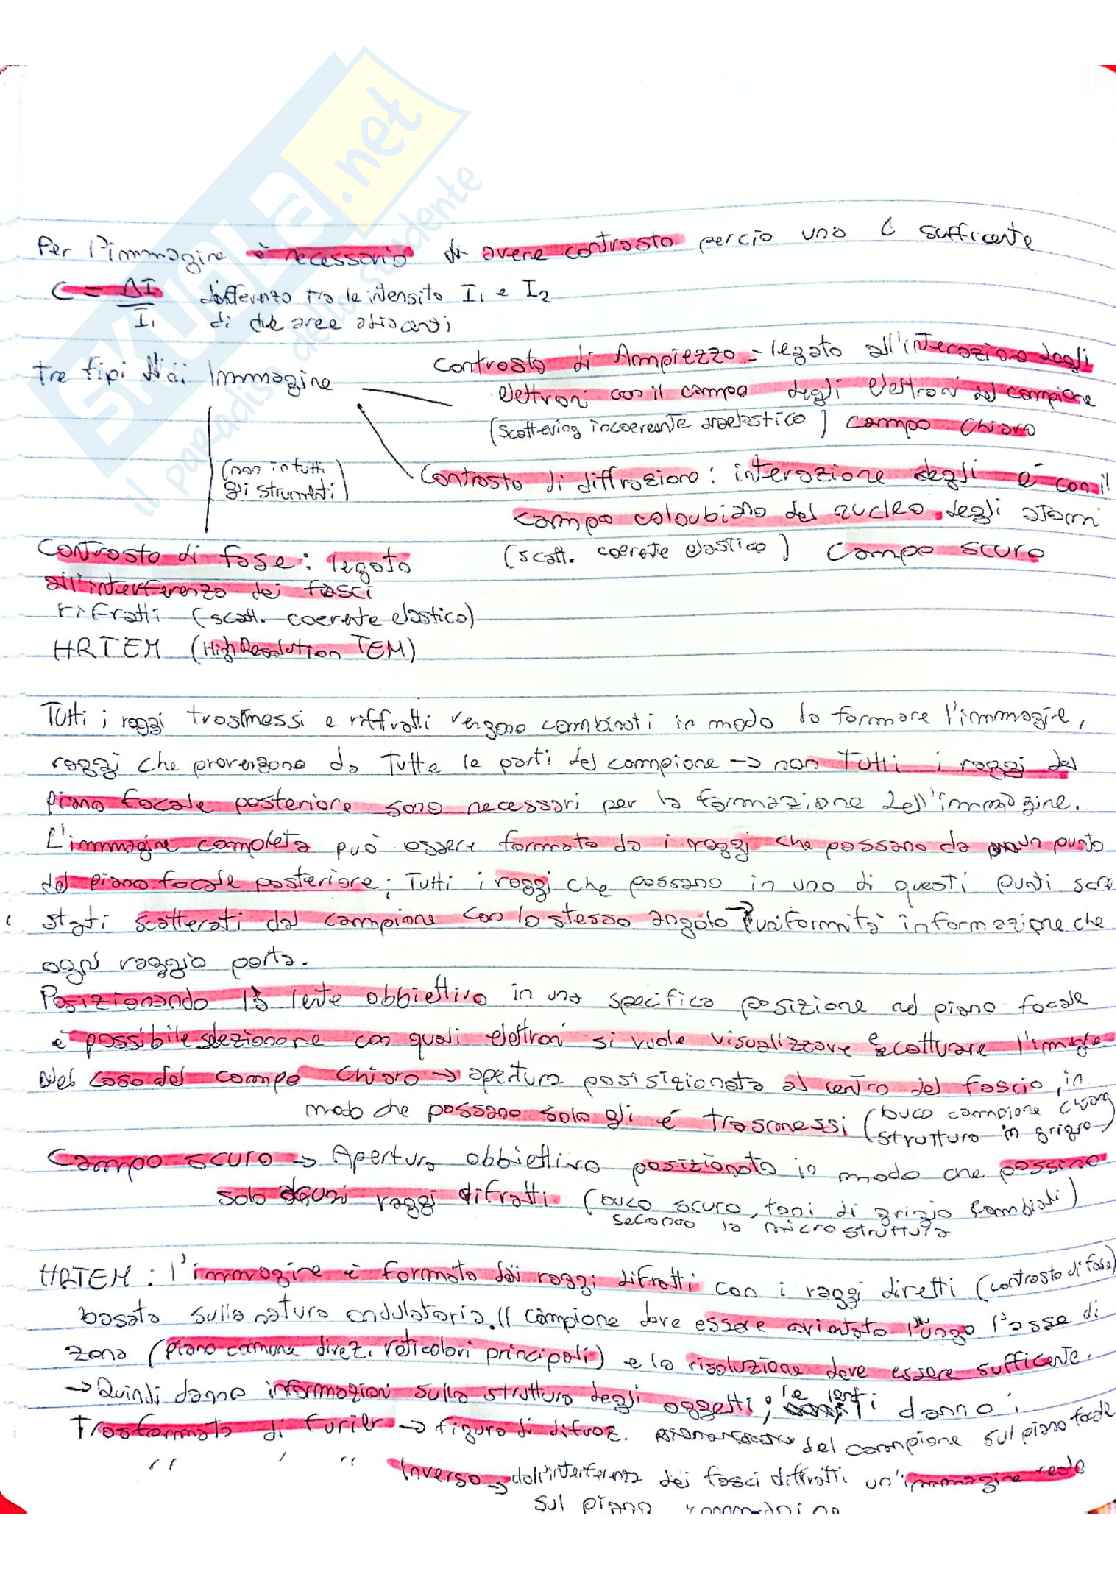 SKUOLA.net
il paradiso dello studente
Per l'immagine è necessario di avere contrasto perciò una C sufficente
C = ΔI / I₁ differenza tra le intensità I₁ e I₂
di due aree adiacenti
Tre tipi di immagine
Contrasto di Ampiezza = legato all'interazione degli
elettroni con il campo degli elettroni del campione
(scattering incoerente anelastico) campo chiaro
(non in tutti
gli strumenti)
Contrasto di diffrazione: interazione degli e⁻ con il
campo coloubiano del nucleo degli atomi
(scatt. coerete elastico) campo scuro
Contrasto di fase: legato
all'interferenza dei fasci
rifratti (scatt. coerente elastico)
HRTEM (High Resolution TEM)
Tutti i raggi trasmessi e riffratti vengono combinati in modo la formare l'immagine,
raggi che provengono da Tutte le parti del campione → non Tutti i raggi del
piano focale posteriore sono necessari per la formazione dell'immagine.
L'immagine completa può essere formata da i raggi che passano da un punto
del piano focale posteriore; Tutti i raggi che passano in uno di questi punti sono
stati scatterati dal campione con lo stesso angolo → uniformità informazione che
ogni raggio porta.
Posizionando la lente obbiettivo in una specifica posizione nel piano focale
è possibile selezionare con quali elettroni si vuole visualizzare e catturare l'image
Nel caso del campo chiaro → apertura posisizionata al centro del fascio, in
modo che passano solo gli e⁻ trasmessi (buco campione chiaro
struttura in grigio)
Campo scuro → Apertura obbiettivo posizionata in modo che passino
solo alcuni raggi difratti (buco scuro, toni di grigio cambiati)
secondo la microstruttura
HRTEM: l'immagine è formata dai raggi difratti con i raggi diretti (contrasto di fase)
basata sulla natura ondulatoria. Il campione deve essere orientato lungo l'asse di
zona (piano comune direz. reticolari principali) e la risoluzione deve essere sufficente.
→ Quindi danno informazioni sulla struttura degli oggetti; le lenti danno i
Trasformata di furier → figura di difraz. del campione sul piano focale
" " " Inversa → dall'interferenza dei fasci diffratti un'immagine reale
sul piano immagine